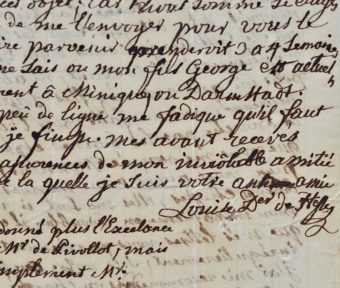 de me l'envoyer pour vous le
re parvenir prendroit 3 a 4 Semain
ne sais ou mon fils George est actuel
ment a ou Darmstadt.
peu de ligne me fadique qu'il faut
je finisse mes avant receves
assurences de mon inviolable amitié
de la quelle je suis votre amie
Louise de
donné plus l'Excelance
Mr. de Livollot, mais
implement Mr.